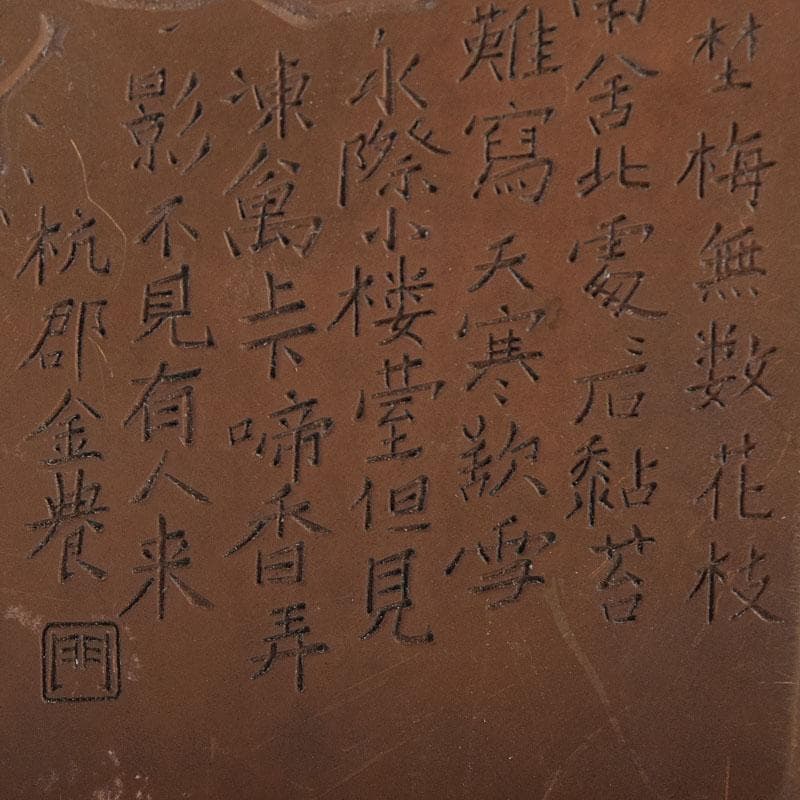 埜梅無数花枝
南舍北處〻石黏苔
難寫天寒欲雪
水際小楼䑓但見
凍萬上下啼香弄
影不見有人来
杭郡金農
門